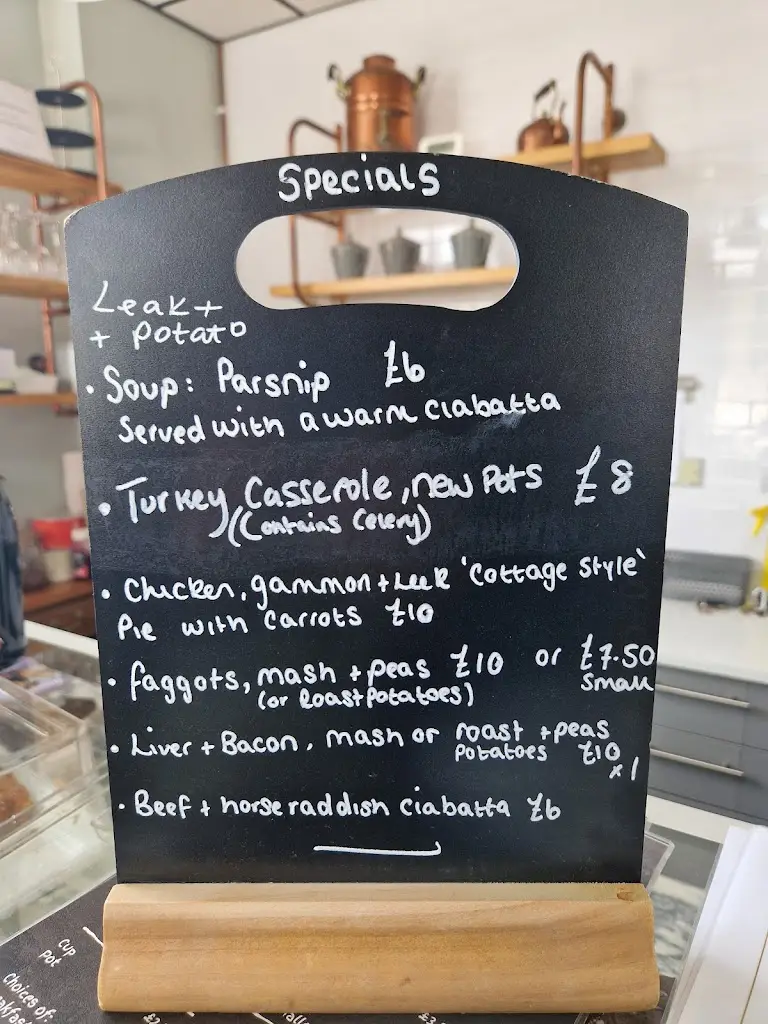 Specials
Leak +
+ potato
• Soup: Parsnip £6
Served with a warm ciabatta
• Turkey Casserole, new Pots £8
(Contains Celery)
• Chicken, gammon + Leek 'cottage style'
Pie with carrots £10
• faggots, mash + peas £10 or £7.50
(or Roast potatoes) small
• Liver + Bacon, mash or roast + peas
potatoes £10
x 1
• Beef + horseraddish ciabatta £6
Cup
Pot
Choices of: